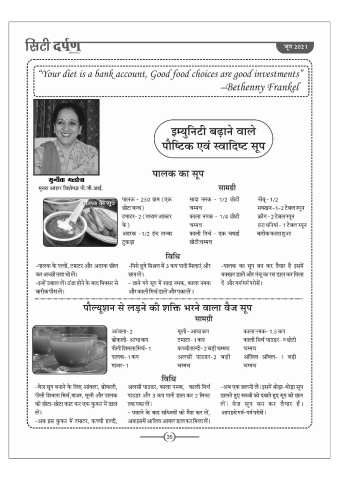 सिटी दर्पण
जून 2021
"Your diet is a bank account, Good food choices are good investments"
–Bethenny Frankel
इम्युनिटी बढ़ाने वाले
पौष्टिक एवं स्वादिष्ट सूप
सुनीता मल्होत्रा
मुख्य आहार विशेषज्ञ पी.जी.आई.
पालक का सूप
सामग्री
पालक - 250 ग्राम (एक
छोटा कप)
टमाटर-2 (मध्यम आकार
के)
अदरक -1/2 इंच लम्बा
टुकड़ा
सादा नमक - 1/2 छोटी
चम्मच
काला नमक - 1/4 छोटी
चम्मच
काली मिर्च - एक चथाई
छोटी चम्मच
नीबू -1/2
मक्खन -1-2 टेबल स्पून
क्रीम -2 टेबल स्पून
हरा धनियां -1 टेबल स्पून
बारीक कतरा हुआ
विधि
-पालक के पत्तों, टमाटर और अदरक छील
कर अच्छी तरह धो लें।
-इन्हें उबाल लें। ठंडा होने के बाद मिक्सर से
बारीक पीस लें।
-पिसे हुये मिश्रण में 3 कप पानी मिलाएं और
छान लें।
- छाने गये सूप में सादा नमक, काला नमक
और काली मिर्च डालें और पका लें।
-पालक का सूप बन कर तैयार है इसमें
मक्खन डालें और नंबू का रस डाल कर मिला
दें और गर्म गर्म परोसें।
पौल्यूशन से लड़ने की शक्ति भरने वाला वैज सूप
सामग्री
आंवला-2
ब्रोकाली-आधा कप
पीली शिमला मिर्च-1
पालक-1 कप
गाजर-1
मूली-आधा कप
टमाटर-1 कप
कच्ची हल्दी-2 बड़ी चम्मच
अलसी पाउडर-2 बड़ी
चम्मच
काला नमक-1.5 कप
काली मिर्च पाउडर- छोटी
चम्मच
ऑलिव ऑयल- 1 बड़ी
चम्मच
विधि
-वेज सूप बनाने के लिए आंवला, ब्रोकली,
पीली शिमला मिर्च, गाजर, मूली और पालक
को छोटा-छोटा काट कर एक कुकर में डाल
लें।
-अब इस कुकर में टमाटर, कच्ची हल्दी,
अलसी पाउडर, काला नमक, काली मिर्च
पाउडर और 3 कप पानी डाल कर 2 मिनट
तक पका लें।
- पकाने के बाद सब्जियों को मैश कर लें,
अब इसमें आलिव आयल डाल कर मिला लें।
-अब एक छलनी लें। इसमें थोड़ा-थोड़ा सूप
डालते हुए सब्जी को दबाते हुए सूप को छान
लें। वेज सूप बन कर तैयार है।
आप इसे गर्म-गर्म परोसें।
35